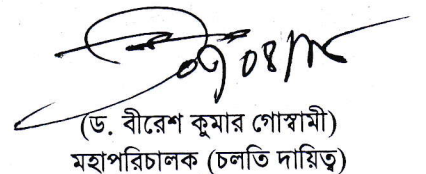 (ড. বীরেশ কুমার গোস্বামী)
মহাপরিচালক (চলতি দায়িত্ব)